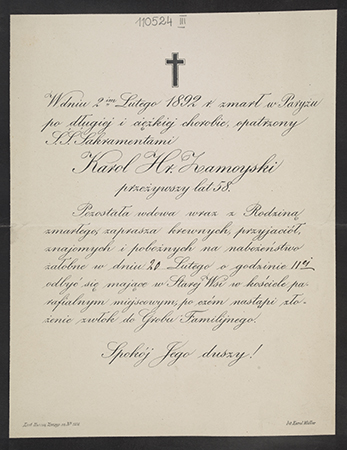 110524 III
W dniu 2im Lutego 1892 r. zmarł w Paryżu
po długiej i ciężkiej chorobie, opatrzony
S.S. Sakramentami
Karol Hr. Zamoyski
przeżywszy lat 58.
Pozostała wdowa wraz z Rodziną
zmarłego, zaprasza krewnych, przyjaciół,
znajomych i pobożnych na nabożeństwo
żałobne w dniu 20 Lutego o godzinie 11ej
odbyć się mające w Starej Wsi w kościele pa-
rafialnym miejscowym, po czém nastąpi zło-
żenie zwłok do Grobu Familijnego.
Spokój Jego duszy!